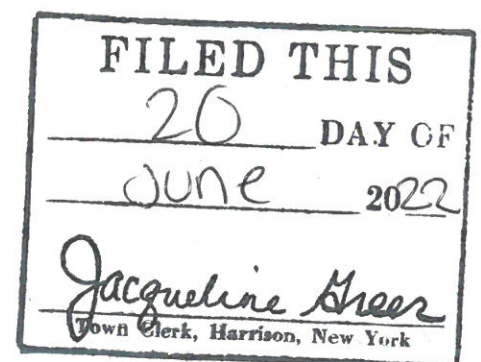 FILED THIS
20 DAY OF
June 2022
Jacqueline Greer
Town Clerk, Harrison, New York